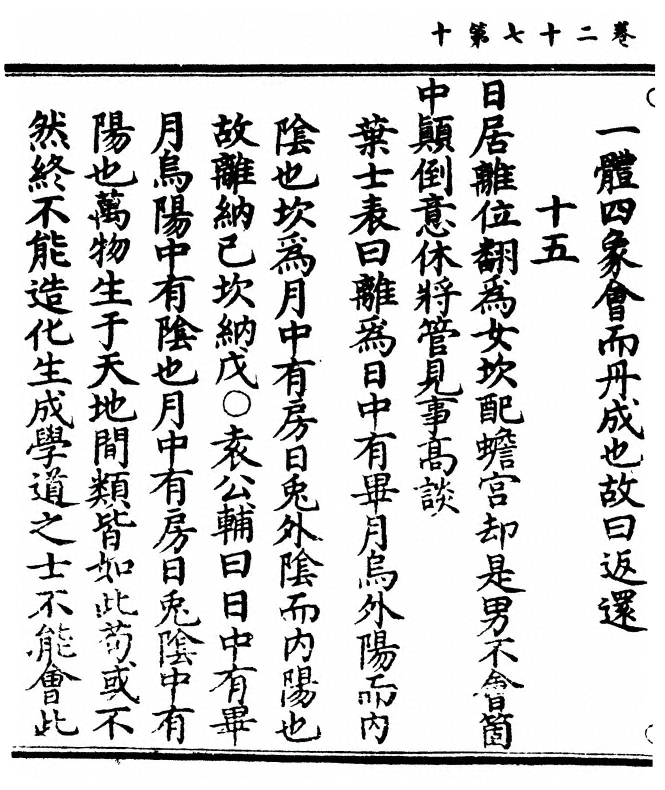 卷二十七第十
一體四象會而丹成也故曰返還
十五
日居離位翻爲女坎配蟾宮却是男不會箇
中顚倒意休將管見事高談
葉士表曰離爲日中有畢月烏外陽而內
陰也坎爲月中有房日兎外陰而內陽也
故離納己坎納戊○袁公輔曰日中有畢
月烏陽中有陰也月中有房日兎陰中有
陽也萬物生于天地間類皆如此苟或不
然終不能造化生成學道之士不能會此